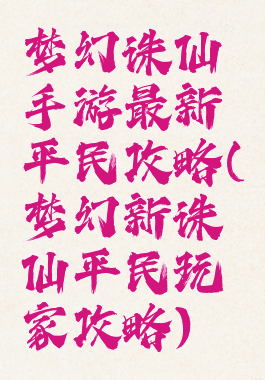 梦幻诛仙
手游最新
平民攻略(
梦幻新诛
仙平民玩
家攻略)